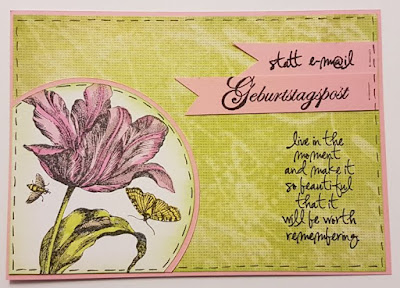 statt e-m@il
Geburtstagspost
live in the
moment
and make it
so beautiful
that it
will be worth
remembering